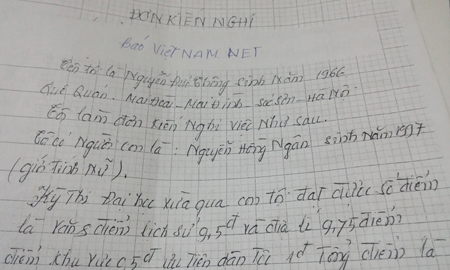 ĐƠN KIẾN NGHỊ
Báo VIỆT NAM NET
Tên tôi là Nguyễn Đức Thông sinh Năm 1966
Quê Quán. Mai Đoài - Mai Đình - Sóc Sơn - Hà Nội
Tôi làm đơn kiến Nghị việc Như sau.
Tôi có Người con là: Nguyễn Hồng Ngân sinh Năm 1997
(giới tính Nữ).
Kỳ Thi Đại học vừa qua con tôi đạt được số điểm
là văn 8 điểm lịch sử 9,5đ và địa lí 9,75 điểm
điểm khu vực 0,5đ ưu tiên dân tộc 1đ Tổng điểm là